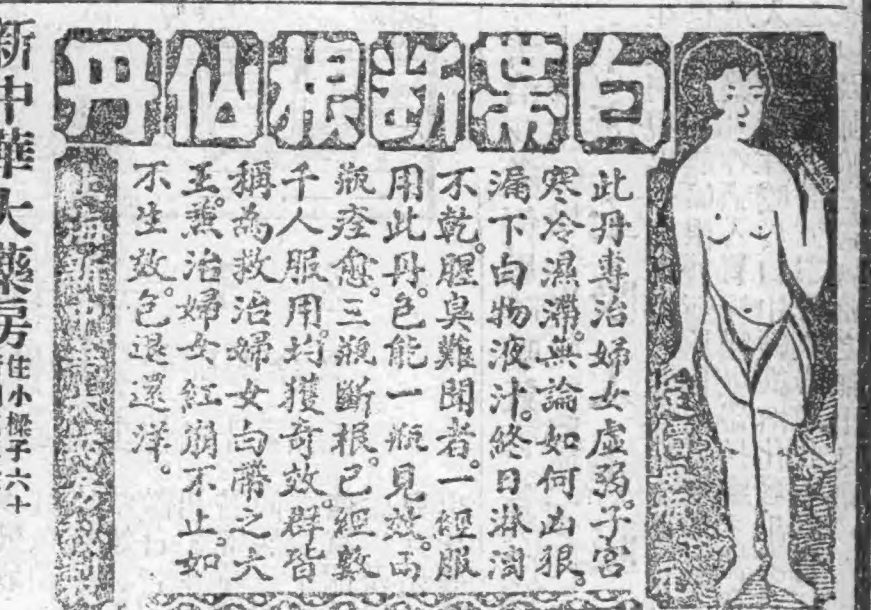 白帶断根仙丹
此丹專治婦女虛弱。子宮
寒冷濕滯。無論如何凶狠。
漏下白物液汁。終日淋漓
不乾。腥臭難聞者。一經服
用此丹。包能一瓶見效。两
瓶痊愈。三瓶斷根。已經數
千人服用。均獲奇效。群皆
稱為救治婦女白帶之大
王。兼治婦女紅崩不止。如
不生效。包退還洋。
定價每瓶 元
上海新中華大药房
新中華大藥房
住小樑子六十